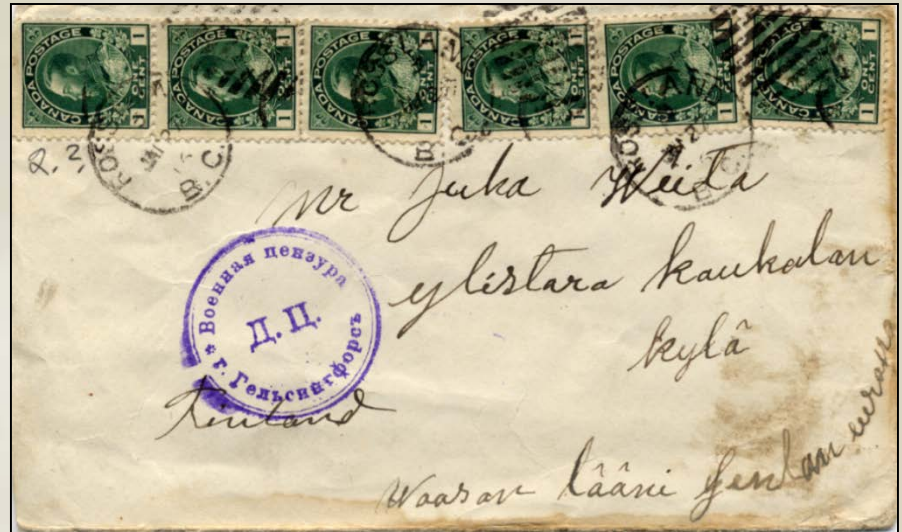 CANADA POSTAGE 1 ONE CENT 1
CANADA POSTAGE 1 ONE CENT 1
CANADA POSTAGE 1 ONE CENT 1
CANADA POSTAGE 1 ONE CENT 1
CANADA POSTAGE 1 ONE CENT 1
CANADA POSTAGE 1 ONE CENT 1
ROSSLAND B.C.
Mr Juka
ylistara kaukalan
kylâ
Военная цензура
Д.Ц.
г. Гельсингфорсъ
Finland
Waasan lââni